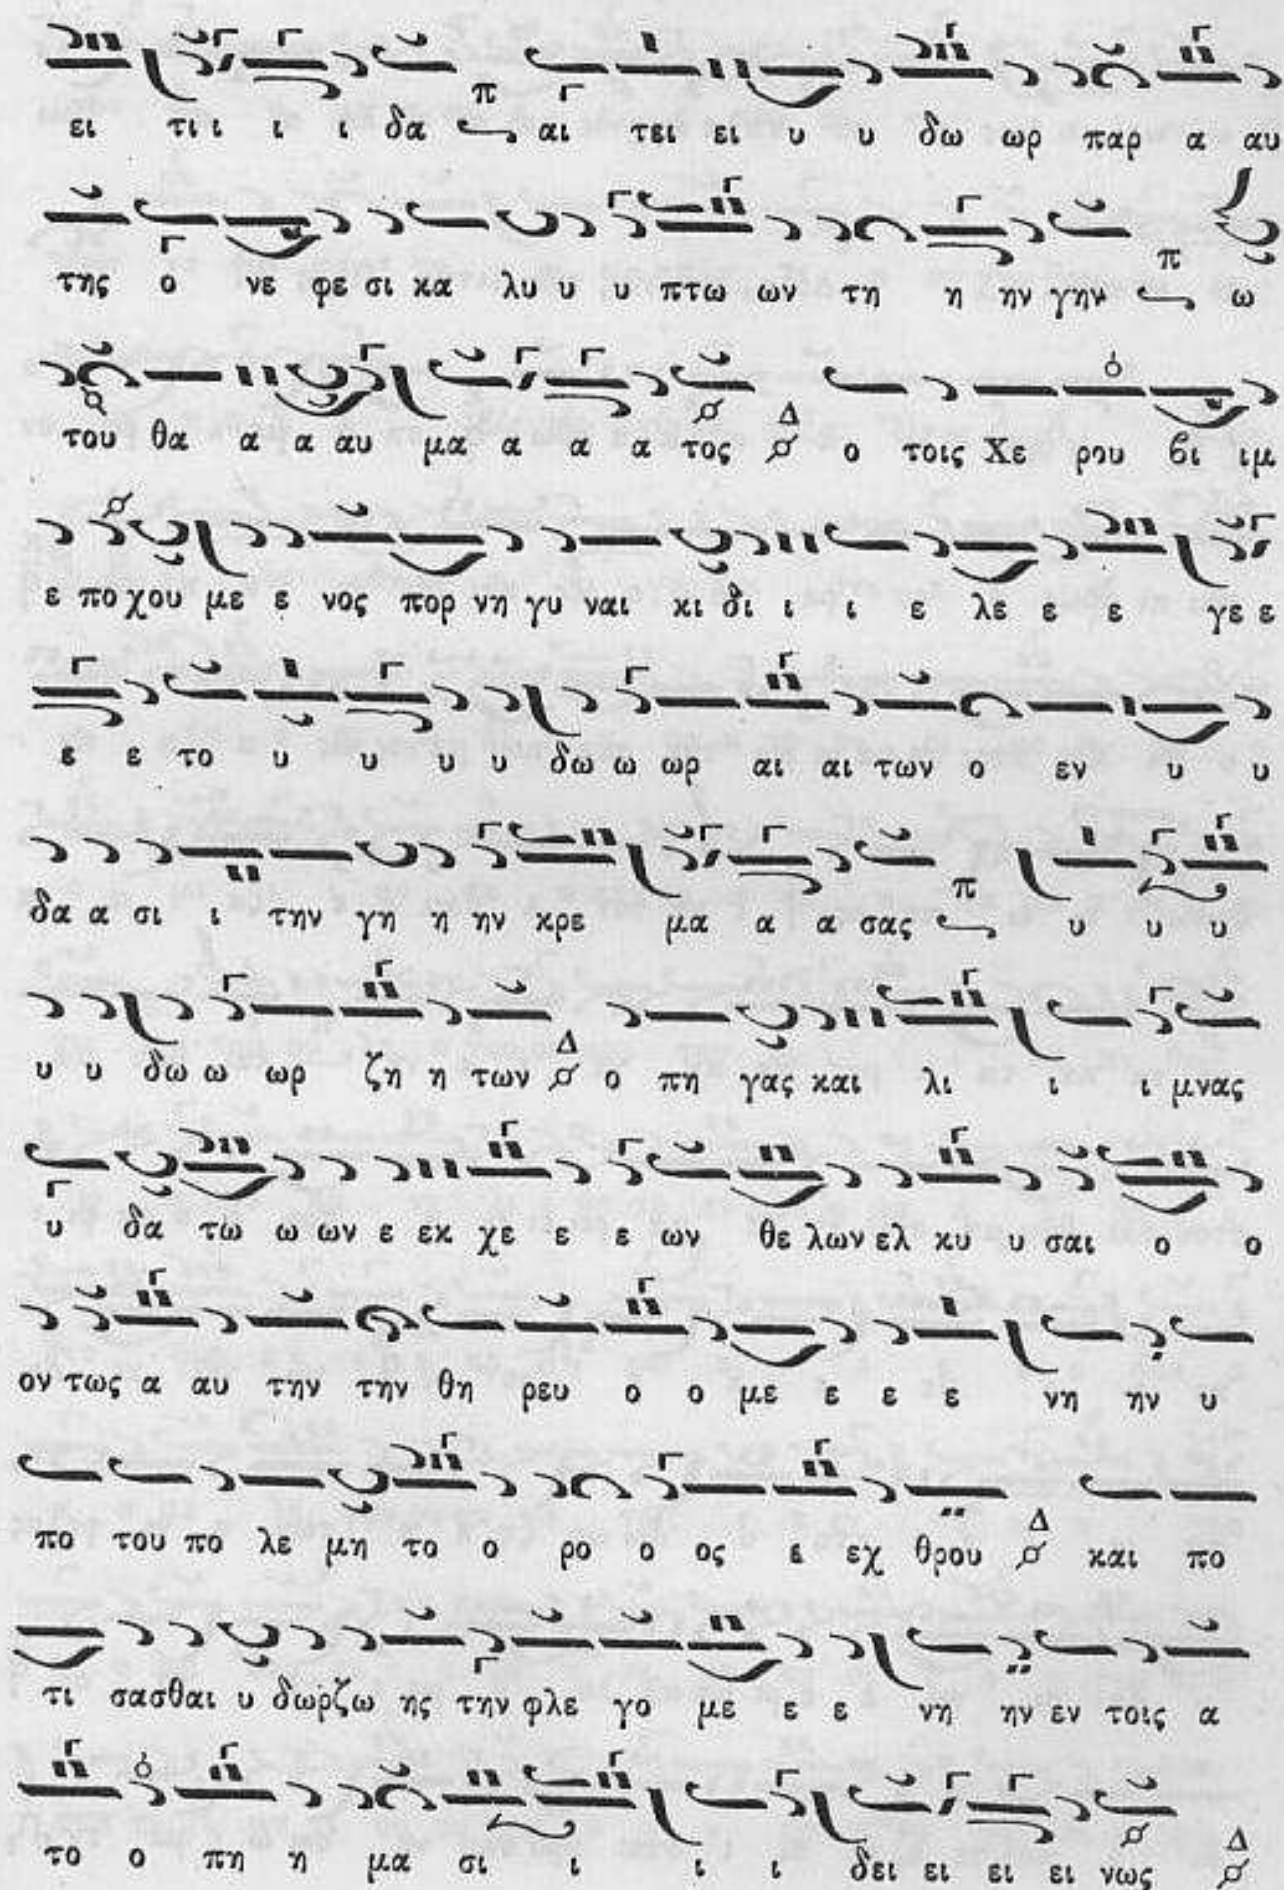 ει τι ι ι ι δα αι τει ει υ υ δω ωρ παρ α αυ
της ο νε φε σι κα λυ υ υ πτω ων τη η ην γην ω
του θα α α αυ μα α α α τος Δ ο τοις Χε ρου βι ιμ
ε πο χου με ε νος πορ νη γυ ναι κι δι ι ι ε λε ε ε γε ε
ε ε το υ υ υ υ δω ω ωρ αι αι των ο εν υ υ
δα α σι ι την γη η ην κρε μα α α σας υ υ υ
υ υ δω ω ωρ ζη η των Δ ο πη γας και λι ι ι μνας
υ δα τω ω ων ε εκ χε ε ε ων θε λων ελ κυ υ σαι ο ο
ον τως α αυ την την θη ρευ ο ο με ε ε ε νη ην υ
πο του πο λε μη το ο ρο ο ος ε εχ θρου Δ και πο
τι σασθαι υ δωρ ζω ης την φλε γο με ε ε νη ην εν τοις α
το ο πη η μα σι ι ι ι δει ει ει ει νως Δ